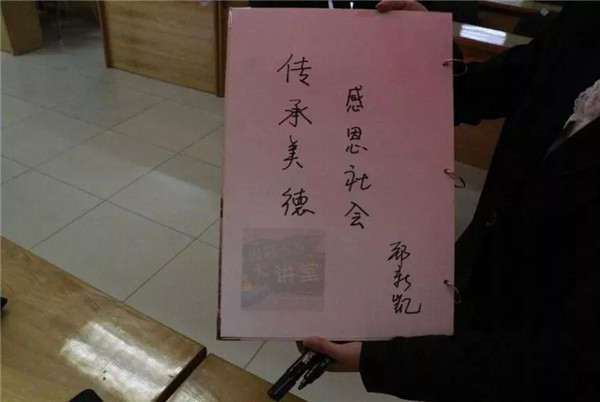 传承美德
感恩社会
新凯
大讲堂